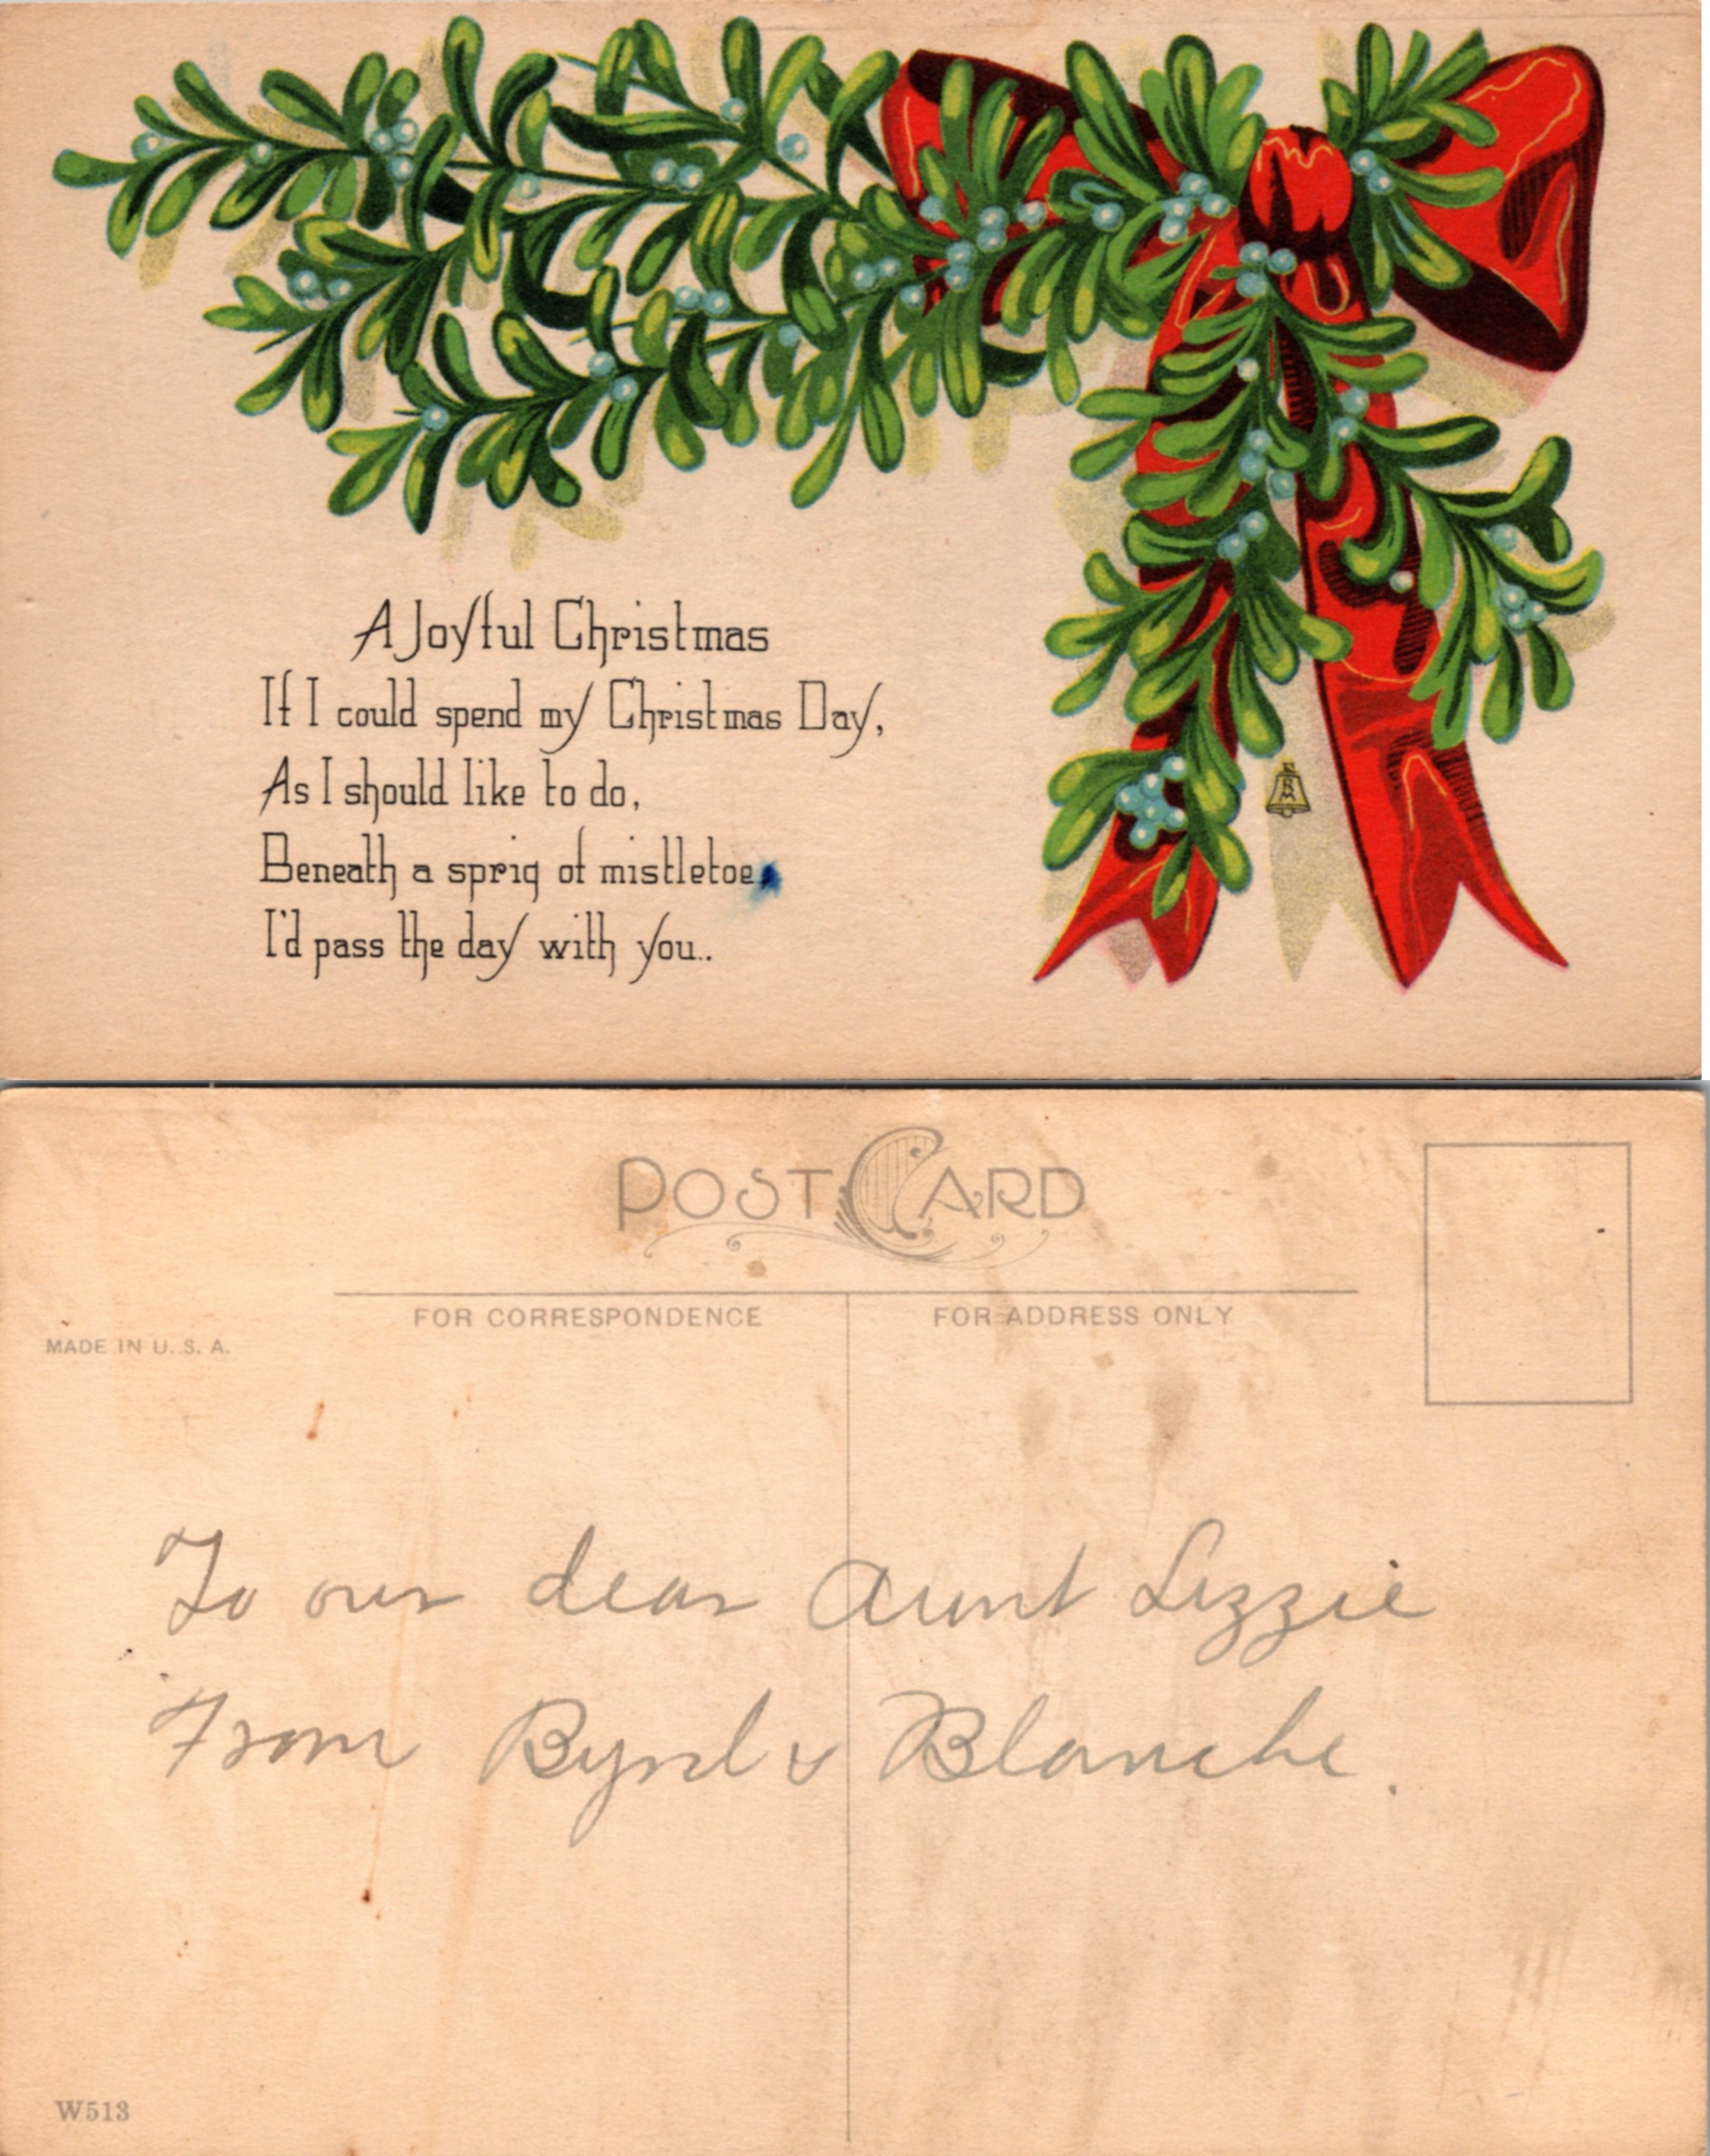 A Joyful Christmas
If I could spend my Christmas Day,
As I should like to do,
Beneath a sprig of mistletoe
I'd pass the day with you..
POST CARD
FOR CORRESPONDENCE
FOR ADDRESS ONLY
MADE IN U. S. A.
To our dear Aunt Lizzie
From Byrd & Blanche.
W513